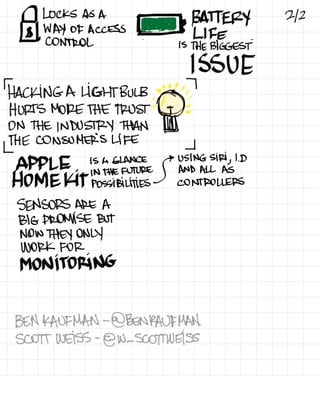 LOCKS AS A
WAY OF ACCESS
CONTROL
BATTERY
LIFE
IS THE BIGGEST
ISSUE
2/2
HACKING A LIGHTBULB
HURTS MORE THE TRUST
ON THE INDUSTRY THAN
THE CONSUMER'S LIFE
APPLE
HOMEKIT
IS A GLANCE
IN THE FUTURE
POSSIBILITIES
USING SIRI, I.D
AND ALL AS
CONTROLLERS
SENSORS ARE A
BIG PROMISE BUT
NOW THEY ONLY
WORK FOR
MONITORING
BEN KAUFMAN - @BENKAUFMAN
SCOTT WEISS - @W_SCOTTWEISS